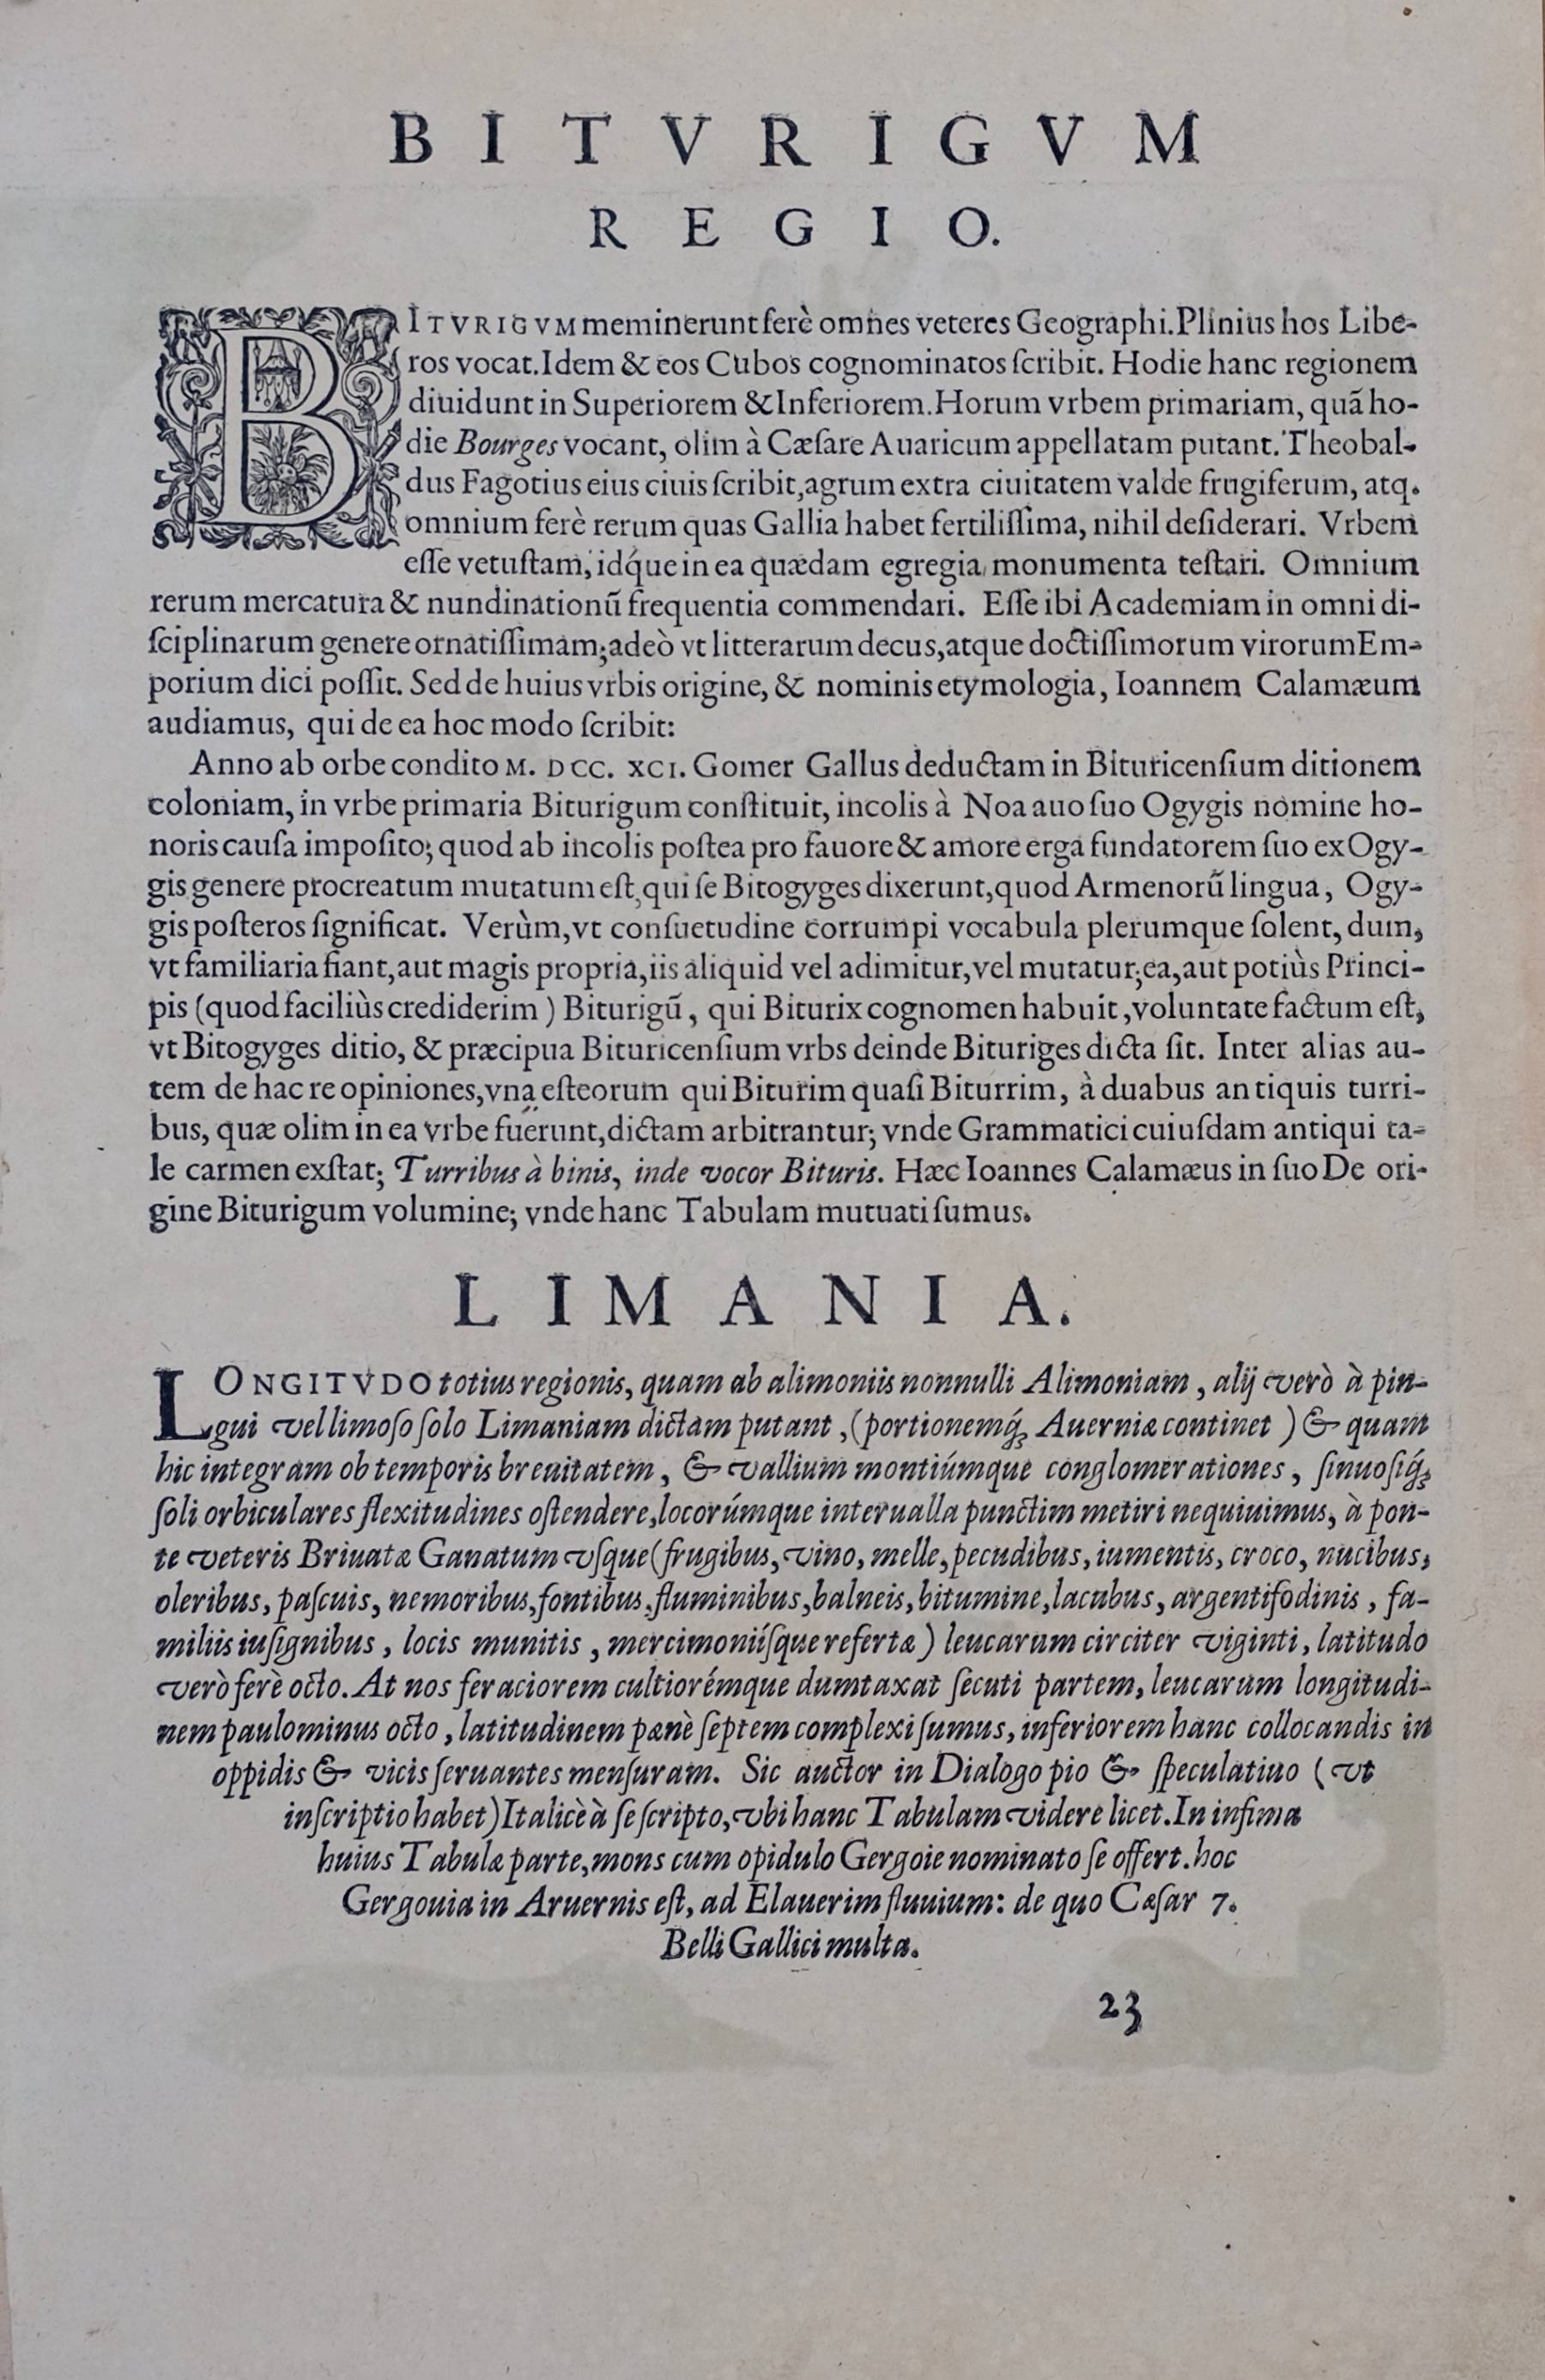 BITVRIGVM
REGIO.
BITVRIGVM meminerunt ferè omnes veteres Geographi. Plinius hos Libe-
ros vocat. Idem & eos Cubos cognominatos ſcribit. Hodie hanc regionem
diuidunt in Superiorem & Inferiorem. Horum vrbem primariam, quã ho-
die Bourges vocant, olim à Cæſare Auaricum appellatam putant. Theobal-
dus Fagotius eius ciuis ſcribit, agrum extra ciuitatem valde frugiferum, atq.
omnium ferè rerum quas Gallia habet fertiliſſima, nihil deſiderari. Vrbem
eſſe vetuſtam, idq́ue in ea quædam egregia monumenta teſtari. Omnium
rerum mercatura & nundinationũ frequentia commendari. Eſſe ibi Academiam in omni di-
ſciplinarum genere ornatiſſimam; adeò vt litterarum decus, atque doctiſſimorum virorum Em-
porium dici poſſit. Sed de huius vrbis origine, & nominis etymologia, Ioannem Calamæum
audiamus, qui de ea hoc modo ſcribit:
Anno ab orbe condito M. DCC. XCI. Gomer Gallus deductam in Bituricenſium ditionem
coloniam, in vrbe primaria Biturigum conſtituit, incolis à Noa auo ſuo Ogygis nomine ho-
noris cauſa impoſito; quod ab incolis poſtea pro fauore & amore erga fundatorem ſuo ex Ogy-
gis genere procreatum mutatum eſt, qui ſe Bitogyges dixerunt, quod Armenorũ lingua, Ogy-
gis poſteros ſignificat. Verùm, vt conſuetudine corrumpi vocabula plerumque ſolent, dum,
vt familiaria fiant, aut magis propria, iis aliquid vel adimitur, vel mutatur; ea, aut potiùs Princi-
pis (quod faciliùs crediderim) Biturigũ, qui Biturix cognomen habuit, voluntate factum eſt,
vt Bitogyges ditio, & præcipua Bituricenſium vrbs deinde Bituriges dicta ſit. Inter alias au-
tem de hac re opiniones, vna eſt eorum qui Biturim quaſi Biturrim, à duabus antiquis turri-
bus, quæ olim in ea vrbe fuerunt, dictam arbitrantur; vnde Grammatici cuiuſdam antiqui ta-
le carmen exſtat; Turribus à binis, inde vocor Bituris. Hæc Ioannes Calamæus in ſuo De ori-
gine Biturigum volumine; vnde hanc Tabulam mutuati ſumus.
LIMANIA.
LONGITVDO totius regionis, quam ab alimoniis nonnulli Alimoniam, alij verò à pin-
gui vel limoſo ſolo Limaniam dictam putant, (portionemq́; Auerniæ continet) & quam
hic integram ob temporis breuitatem, & vallium montiúmque conglomerationes, ſinuoſiq́;
ſoli orbiculares flexitudines oſtendere, locorúmque interualla punctim metiri nequiuimus, à pon-
te veteris Briuatæ Ganatum vſque (frugibus, vino, melle, pecudibus, iumentis, croco, nucibus,
oleribus, paſcuis, nemoribus, fontibus, fluminibus, balneis, bitumine, lacubus, argentifodinis, fa-
miliis iuſignibus, locis munitis, mercimoniíſque refertæ) leucarum circiter viginti, latitudo
verò ferè octo. At nos feraciorem cultiorémque dumtaxat ſecuti partem, leucarum longitudi-
nem paulominus octo, latitudinem pænè ſeptem complexi ſumus, inferiorem hanc collocandis in
oppidis & vicis ſeruantes menſuram. Sic auctor in Dialogo pio & ſpeculatiuo (vt
inſcriptio habet) Italicè à ſe ſcripto, vbi hanc Tabulam videre licet. In infima
huius Tabulæ parte, mons cum opidulo Gergoie nominato ſe offert. hoc
Gergouia in Aruernis eſt, ad Elauerim fluuium: de quo Cæſar 7.
Belli Gallici multa.
23